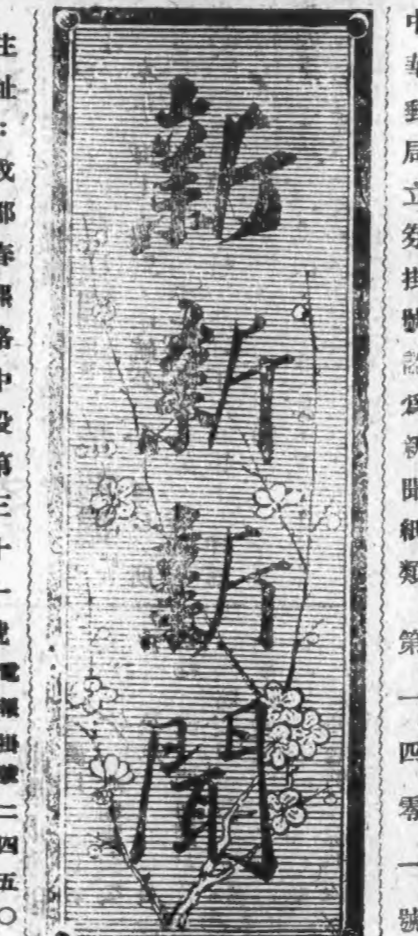 中華郵局立券掛號認為新聞紙類 第一四零一號
新新新聞
住址：成都春熙路中段第三十一號 電報掛號二四五〇